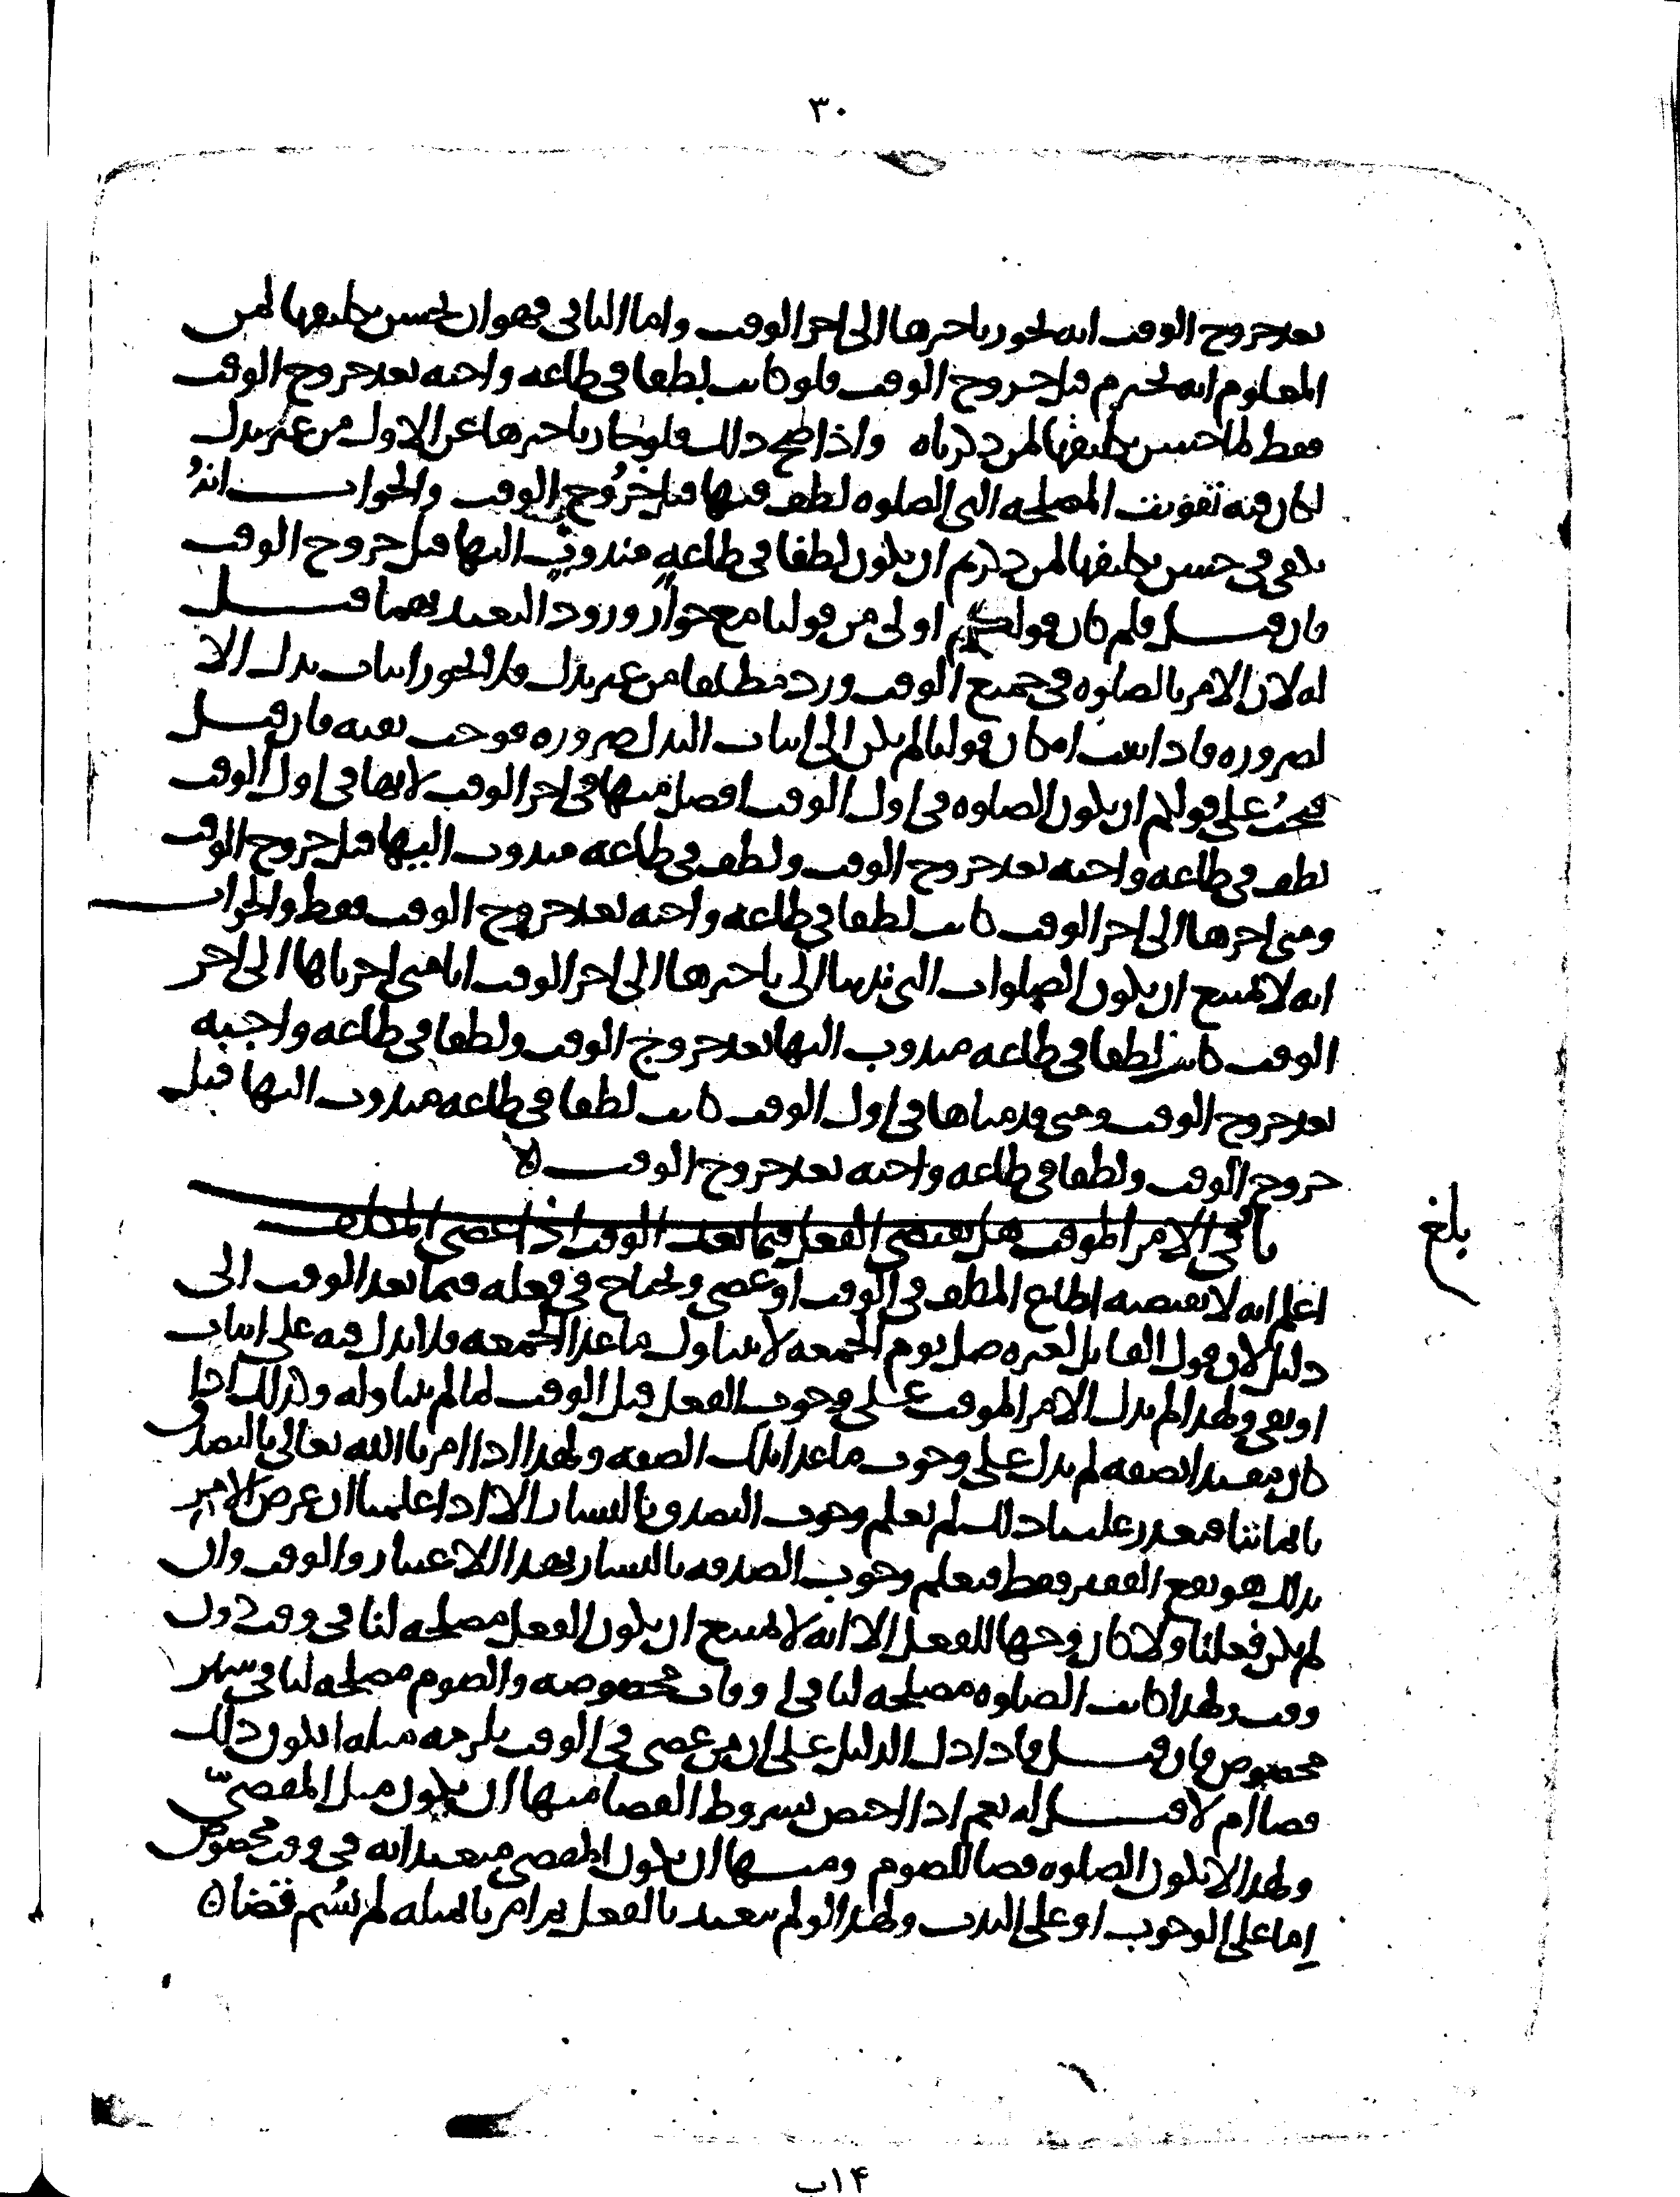 ٣٠
بعد خروج الوقت انه يجوز تاخيرها الى اخر الوقت واما الثاني فهو ان يحسن تكليفها لمن
المعلوم انه يخترم قبل خروج الوقت فلو كانت لطفا في طاعه واجبه بعد خروج الوقت
فقط لما حسن تكليفها لمن ذكرناه واذا صح ذلك فلو جاز تاخيرها عن الاول من غير بدل
لكان فيه تفويت المصلحه التي الصلوه لطف فيها قبل خروج الوقت والجواب انه
يكفي في حسن تكليفها لمن ذكرتم ان يكون لطفا في طاعه مندوب اليها قبل خروج الوقت
فان قيل فلم كان قولكم اولى من قولنا مع جواز ورود التعبد بهما قيل
له لان الامر بالصلوه في جميع الوقت ورد مطلقا من غير بدل فلا يجوز اثبات بدل الا
لضروره فاذا ثبت امكان قولنا لم يكن الى اثبات البدل ضروره فوجب نفيه فان قيل
فيجب على قولكم ان يكون الصلوه في اول الوقت افضل منها في اخر الوقت لانها في اول الوقت
لطف في طاعه واجبه بعد خروج الوقت ولطف في طاعه مندوب اليها قبل خروج الوقت
ومتى اخرها الى اخر الوقت كانت لطفا في طاعه واجبه بعد خروج الوقت فقط والجواب
انه لا يمتنع ان يكون الصلوات التي ندبنا الى تاخيرها الى اخر الوقت انا متى اخرناها الى اخر
الوقت كانت لطفا في طاعه مندوب اليها بعد خروج الوقت ولطفا في طاعه واجبه
بعد خروج الوقت ومتى قدمناها في اول الوقت كانت لطفا في طاعه مندوب اليها قبل
خروج الوقت ولطفا في طاعه واجبه بعد خروج الوقت ه
باب في الامر الموقت هل يقتضي الفعل فيما بعد الوقت اذا عصى المكلف
بلغ
اعلم انه لا يقتضيه اطاع المكلف في الوقت او عصى ويحتاج في فعله فيما بعد الوقت الى
دليل لان قول القايل لغيره صل يوم الجمعه لا يتناول ما عدا الجمعه فلا يدل فيه على اثبات
او نفي ولهذا لم يدل الامر الموقت على وجوب الفعل قبل الوقت لما لم يتناوله وكذلك اذا
كان مقيدا بصفه لم يدل على وجوب ما عدا تلك الصفه ولهذا اذا امرنا الله تعالى بالتصدق
بايماننا فتعذر علينا ذلك لم نعلم وجوب التصدق باليسار الا اذا علمنا ان غرض الامر
بذلك هو نفع الفقير فقط فنعلم وجوب الصدقه باليسار بهذا الاعتبار والوقت وان
لم يكن فعلنا ولا كان وجها للفعل الا انه لا يمتنع ان يكون الفعل مصلحه لنا في وقت دون
وقت ولهذا كانت الصلوه مصلحه لنا في اوقات مخصوصه والصوم مصلحه لنا في شهر
مخصوص فان قيل فاذا دل الدليل على ان من عصى في الوقت يلزمه مثله ايكون ذلك
قضا ام لا قيل له نعم اذا اختص بشروط القضا منها ان يكون مثل المقضي
ولهذا لا يكون الصلوه قضا للصوم ومنها ان يكون المقضي متعبدا به في وقت مخصوص
اما على الوجوب او على الندب ولهذا لو لم نتعبد بالفعل ثم امر بامثله لم يسم قضا ه
١٤ب